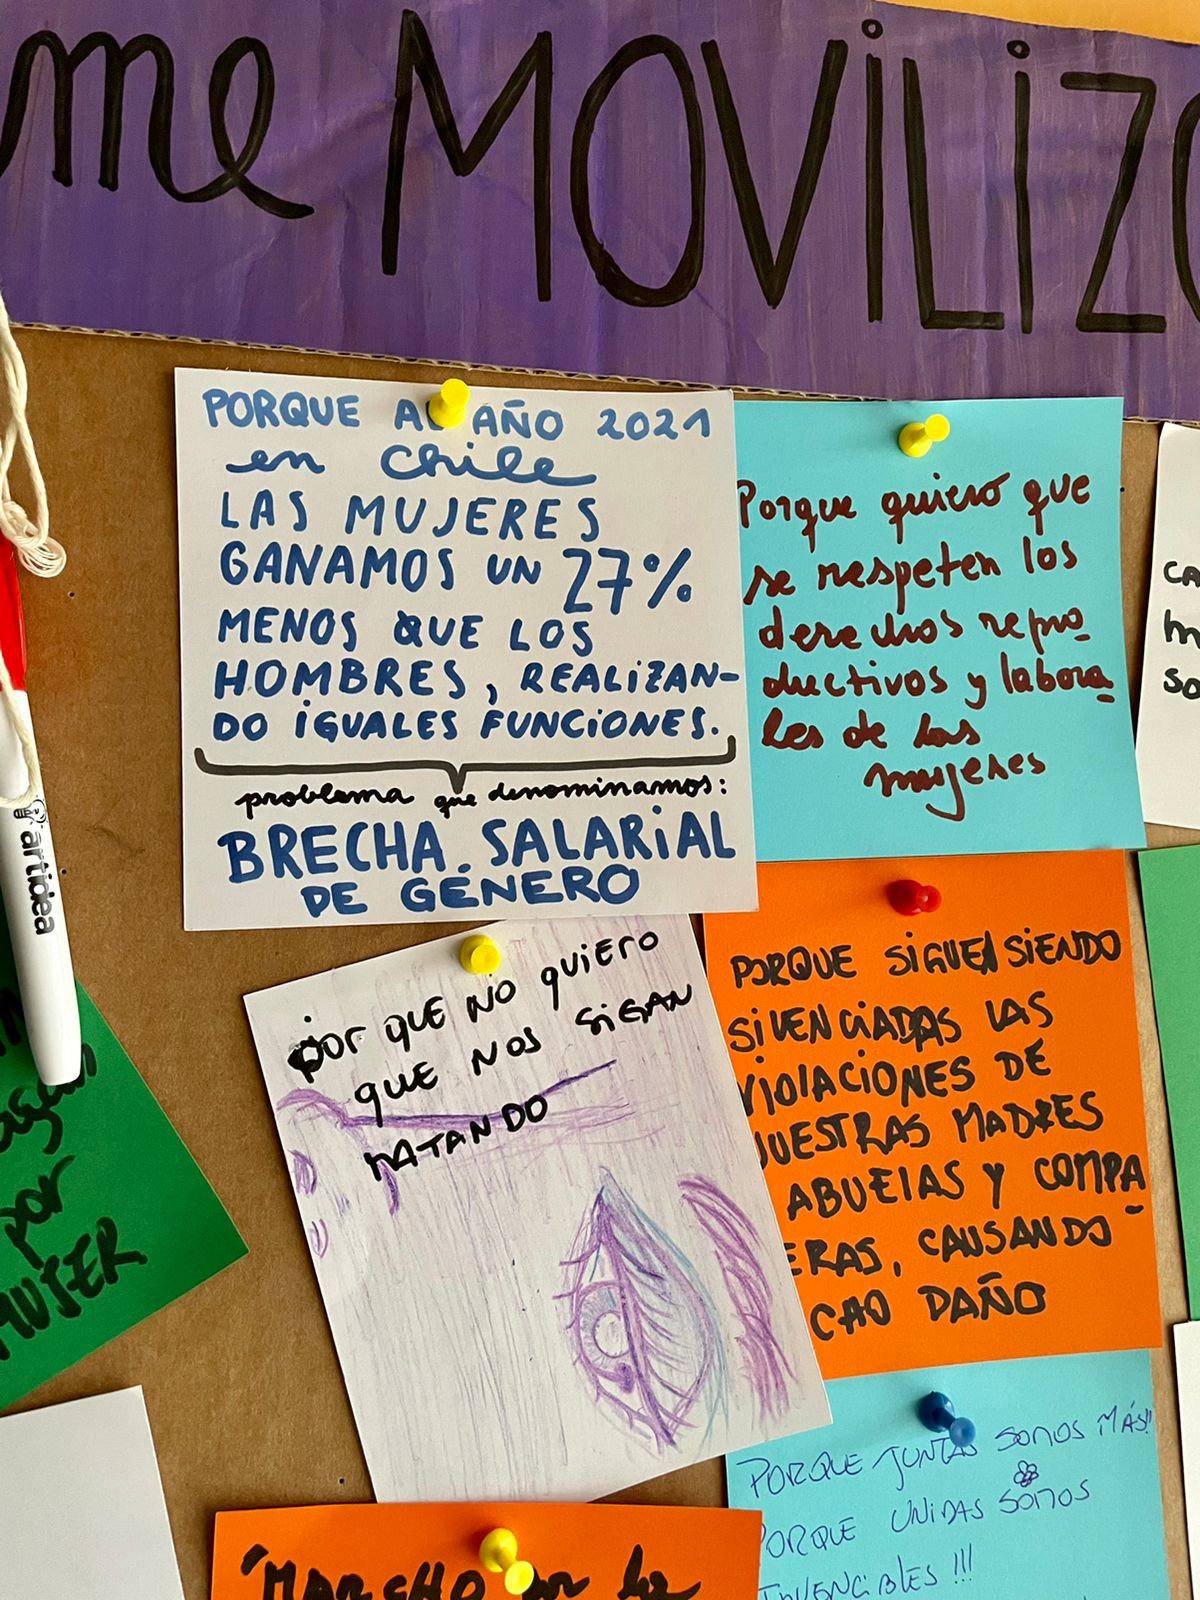 me MOVILIZO
PORQUE AL AÑO 2021
en Chile
LAS MUJERES
GANAMOS UN 27%
MENOS QUE LOS
HOMBRES, REALIZAN-
DO IGUALES FUNCIONES.
problema que denominamos:
BRECHA SALARIAL
DE GÉNERO
Porque quiero que
se respeten los
derechos repro
ductivos y labora
les de las
mujeres
CA
SO
por QUE NO quiero
QUE NOS SIGAN
MATANDO
PORQUE SIGUEN SIENDO
SILENCIADAS LAS
VIOLACIONES DE
NUESTRAS MADRES
ABUELAS Y COMPA-
ERAS, CAUSANDO
CHO DAÑO
artidea
por
MUJER
PORQUE JUNTAS SOMOS MÁS!!
PORQUE UNIDAS SOMOS
INVENCIBLES!!!
"MARCHO por la